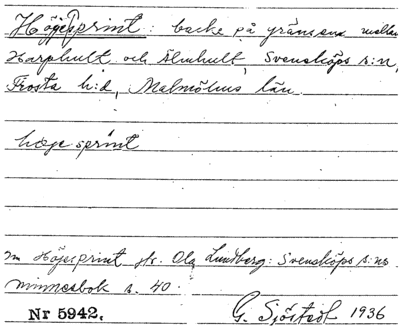 Höjesprint: backe på gränsen mellan
Harphult och Älmhult, Svensköps s:n,
Frosta h:d, Malmöhus län.
hœje sprint
Höjesprint jfr. Ola Lundberg: Svensköps s:ns
minnesbok s. 40.
Nr 5942. G. Sjöstedt 1936